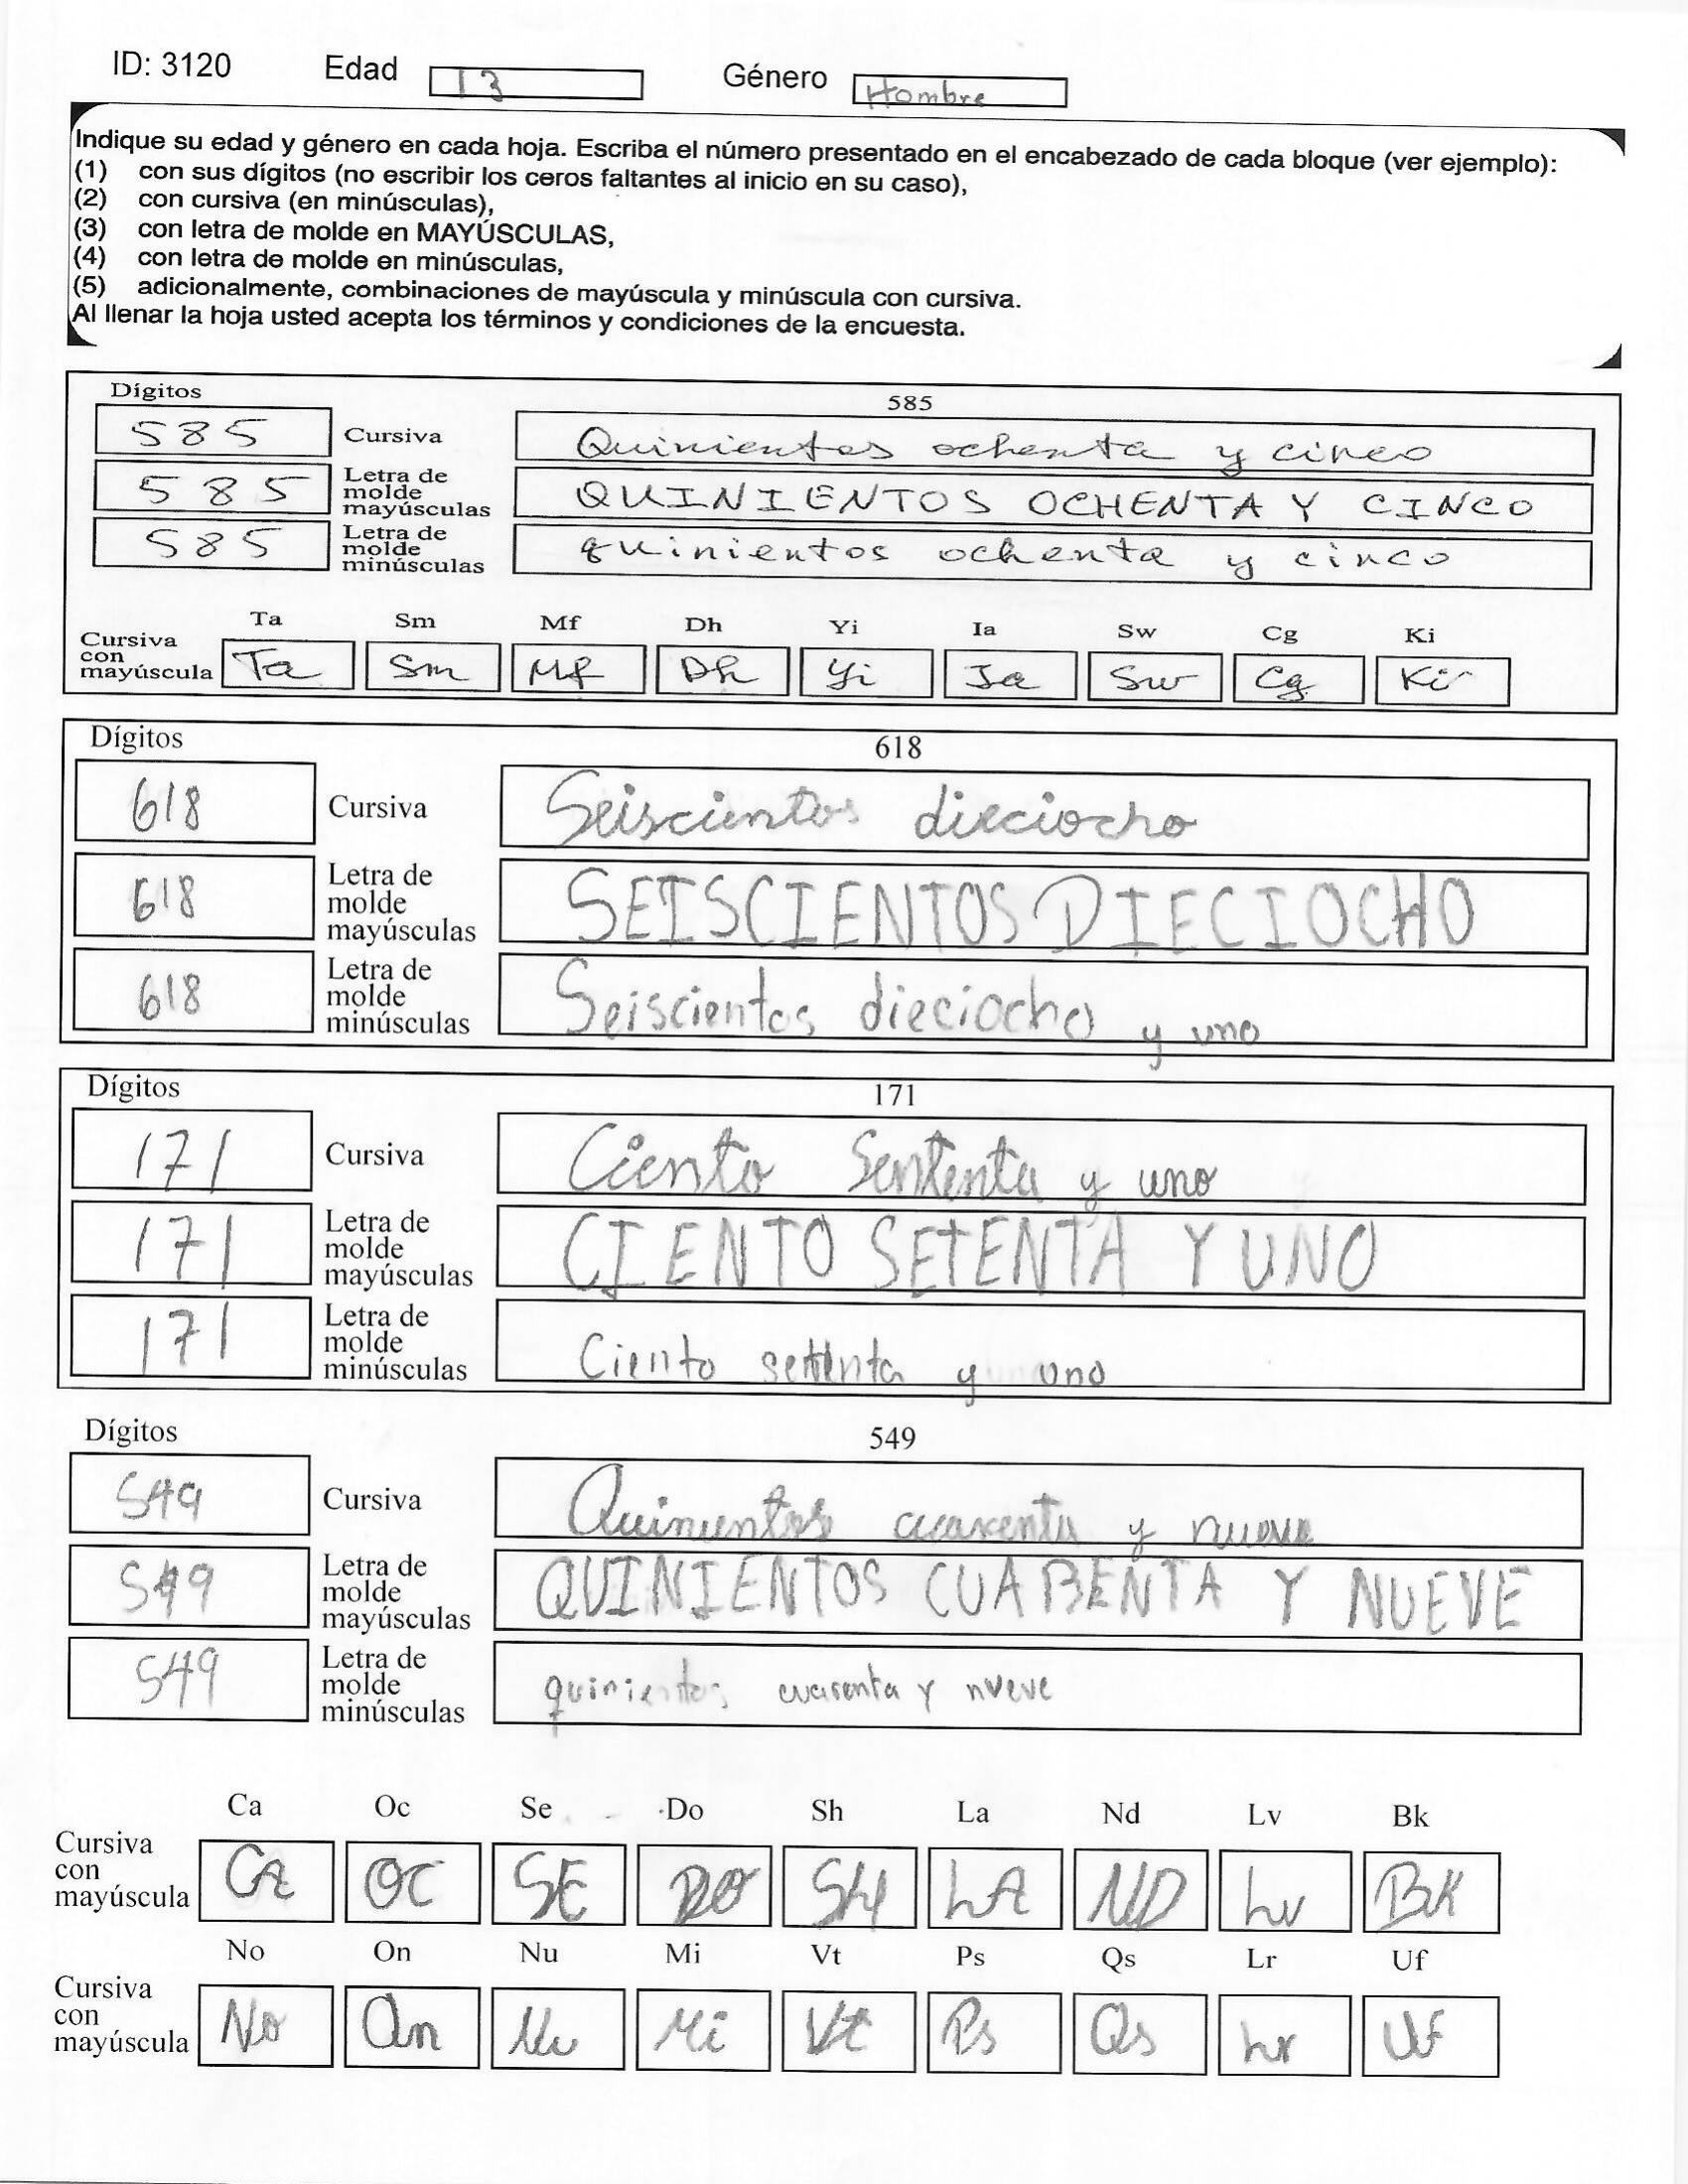 ID: 3120 Edad 13 Género Hombre
Indique su edad y género en cada hoja. Escriba el número presentado en el encabezado de cada bloque (ver ejemplo):
(1) con sus dígitos (no escribir los ceros faltantes al inicio en su caso),
(2) con cursiva (en minúsculas),
(3) con letra de molde en MAYÚSCULAS,
(4) con letra de molde en minúsculas,
(5) adicionalmente, combinaciones de mayúscula y minúscula con cursiva.
Al llenar la hoja usted acepta los términos y condiciones de la encuesta.
Dígitos 585
585 Cursiva Quinientos ochenta y cinco
585 Letra de molde mayúsculas QUINIENTOS OCHENTA Y CINCO
585 Letra de molde minúsculas quinientos ochenta y cinco
Ta Sm Mf Dh Yi Ia Sw Cg Ki
Cursiva con mayúscula Ta Sm Mf Dh Yi Ia Sw Cg Ki
Dígitos 618
618 Cursiva Seiscientos dieciocho
618 Letra de molde mayúsculas SEISCIENTOS DIECIOCHO
618 Letra de molde minúsculas Seiscientos dieciocho y uno
Dígitos 171
171 Cursiva Ciento Sententa y uno
171 Letra de molde mayúsculas CIENTO SETENTA Y UNO
171 Letra de molde minúsculas Ciento setenta y uno
Dígitos 549
549 Cursiva Quinientos cuarenta y nueve
549 Letra de molde mayúsculas QUINIENTOS CUARENTA Y NUEVE
549 Letra de molde minúsculas quinientos cuarenta y nueve
Ca Oc Se Do Sh La Nd Lv Bk
Cursiva con mayúscula CA OC SE DO SH LA ND Lv BK
No On Nu Mi Vt Ps Qs Lr Uf
Cursiva con mayúscula No On Nu Mi Vt Ps Qs Lr Uf